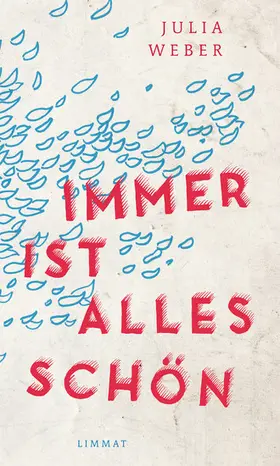 JULIA
WEBER
IMMER
IST
ALLES
SCHÖN
LIMMAT